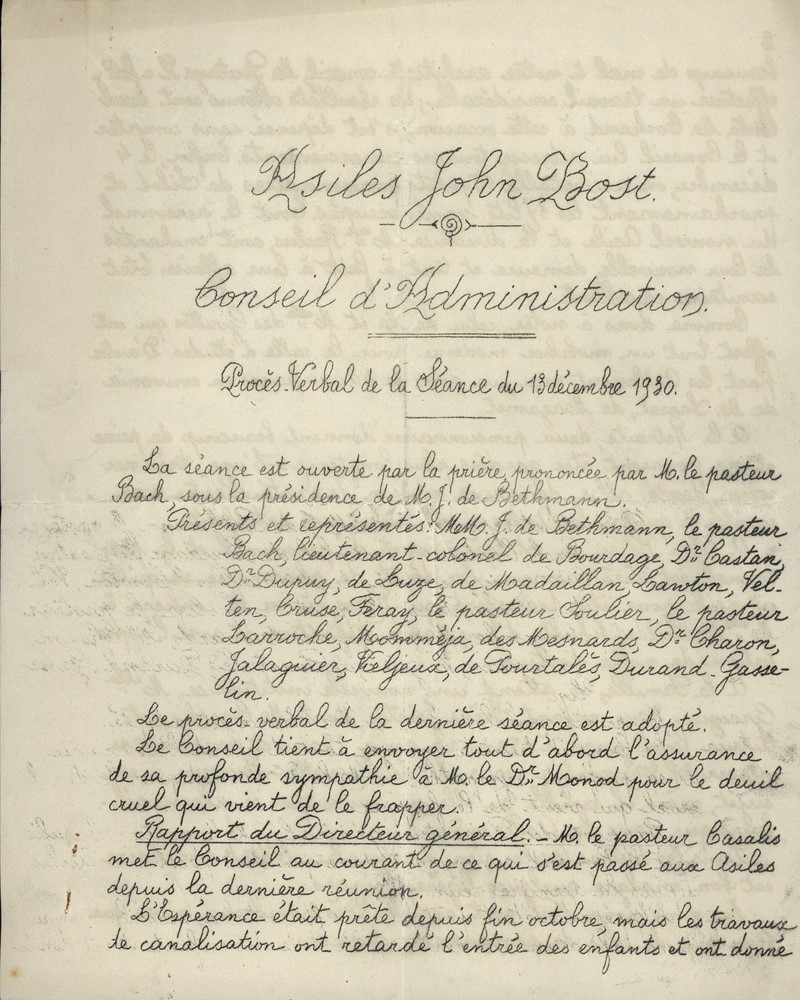 Asiles John Bost.
Conseil d'Administration.
Procès-Verbal de la Séance du 13 décembre 1930.
La séance est ouverte par la prière, prononcée par M. le pasteur
Bach, sous la présidence de M. J. de Bethmann.
Présents et représentés: MM. J. de Bethmann, le pasteur
Bach, lieutenant-colonel de Bourdage, Dr. Castan,
Dr. Dupuy, de Luze, de Madaillan, Lawton, Vel-
ten, Cruse, Feray, le pasteur Soulier, le pasteur
Larroche, Momméja, des Mesnards, Dr. Charon,
Jalaguier, Vieljeux, de Pourtalès, Durand-Gasse-
lin.
Le procès-verbal de la dernière séance est adopté.
Le Conseil tient à envoyer tout d'abord l'assurance
de sa profonde sympathie à M. le Dr. Monod pour le deuil
cruel qui vient de le frapper.
Rapport du Directeur général. - M. le pasteur Casalis
met le Conseil au courant de ce qui s'est passé aux Asiles
depuis la dernière réunion.
L'Espérance était prête depuis fin octobre, mais les travaux
de canalisation ont retardé l'entrée des enfants et ont donné